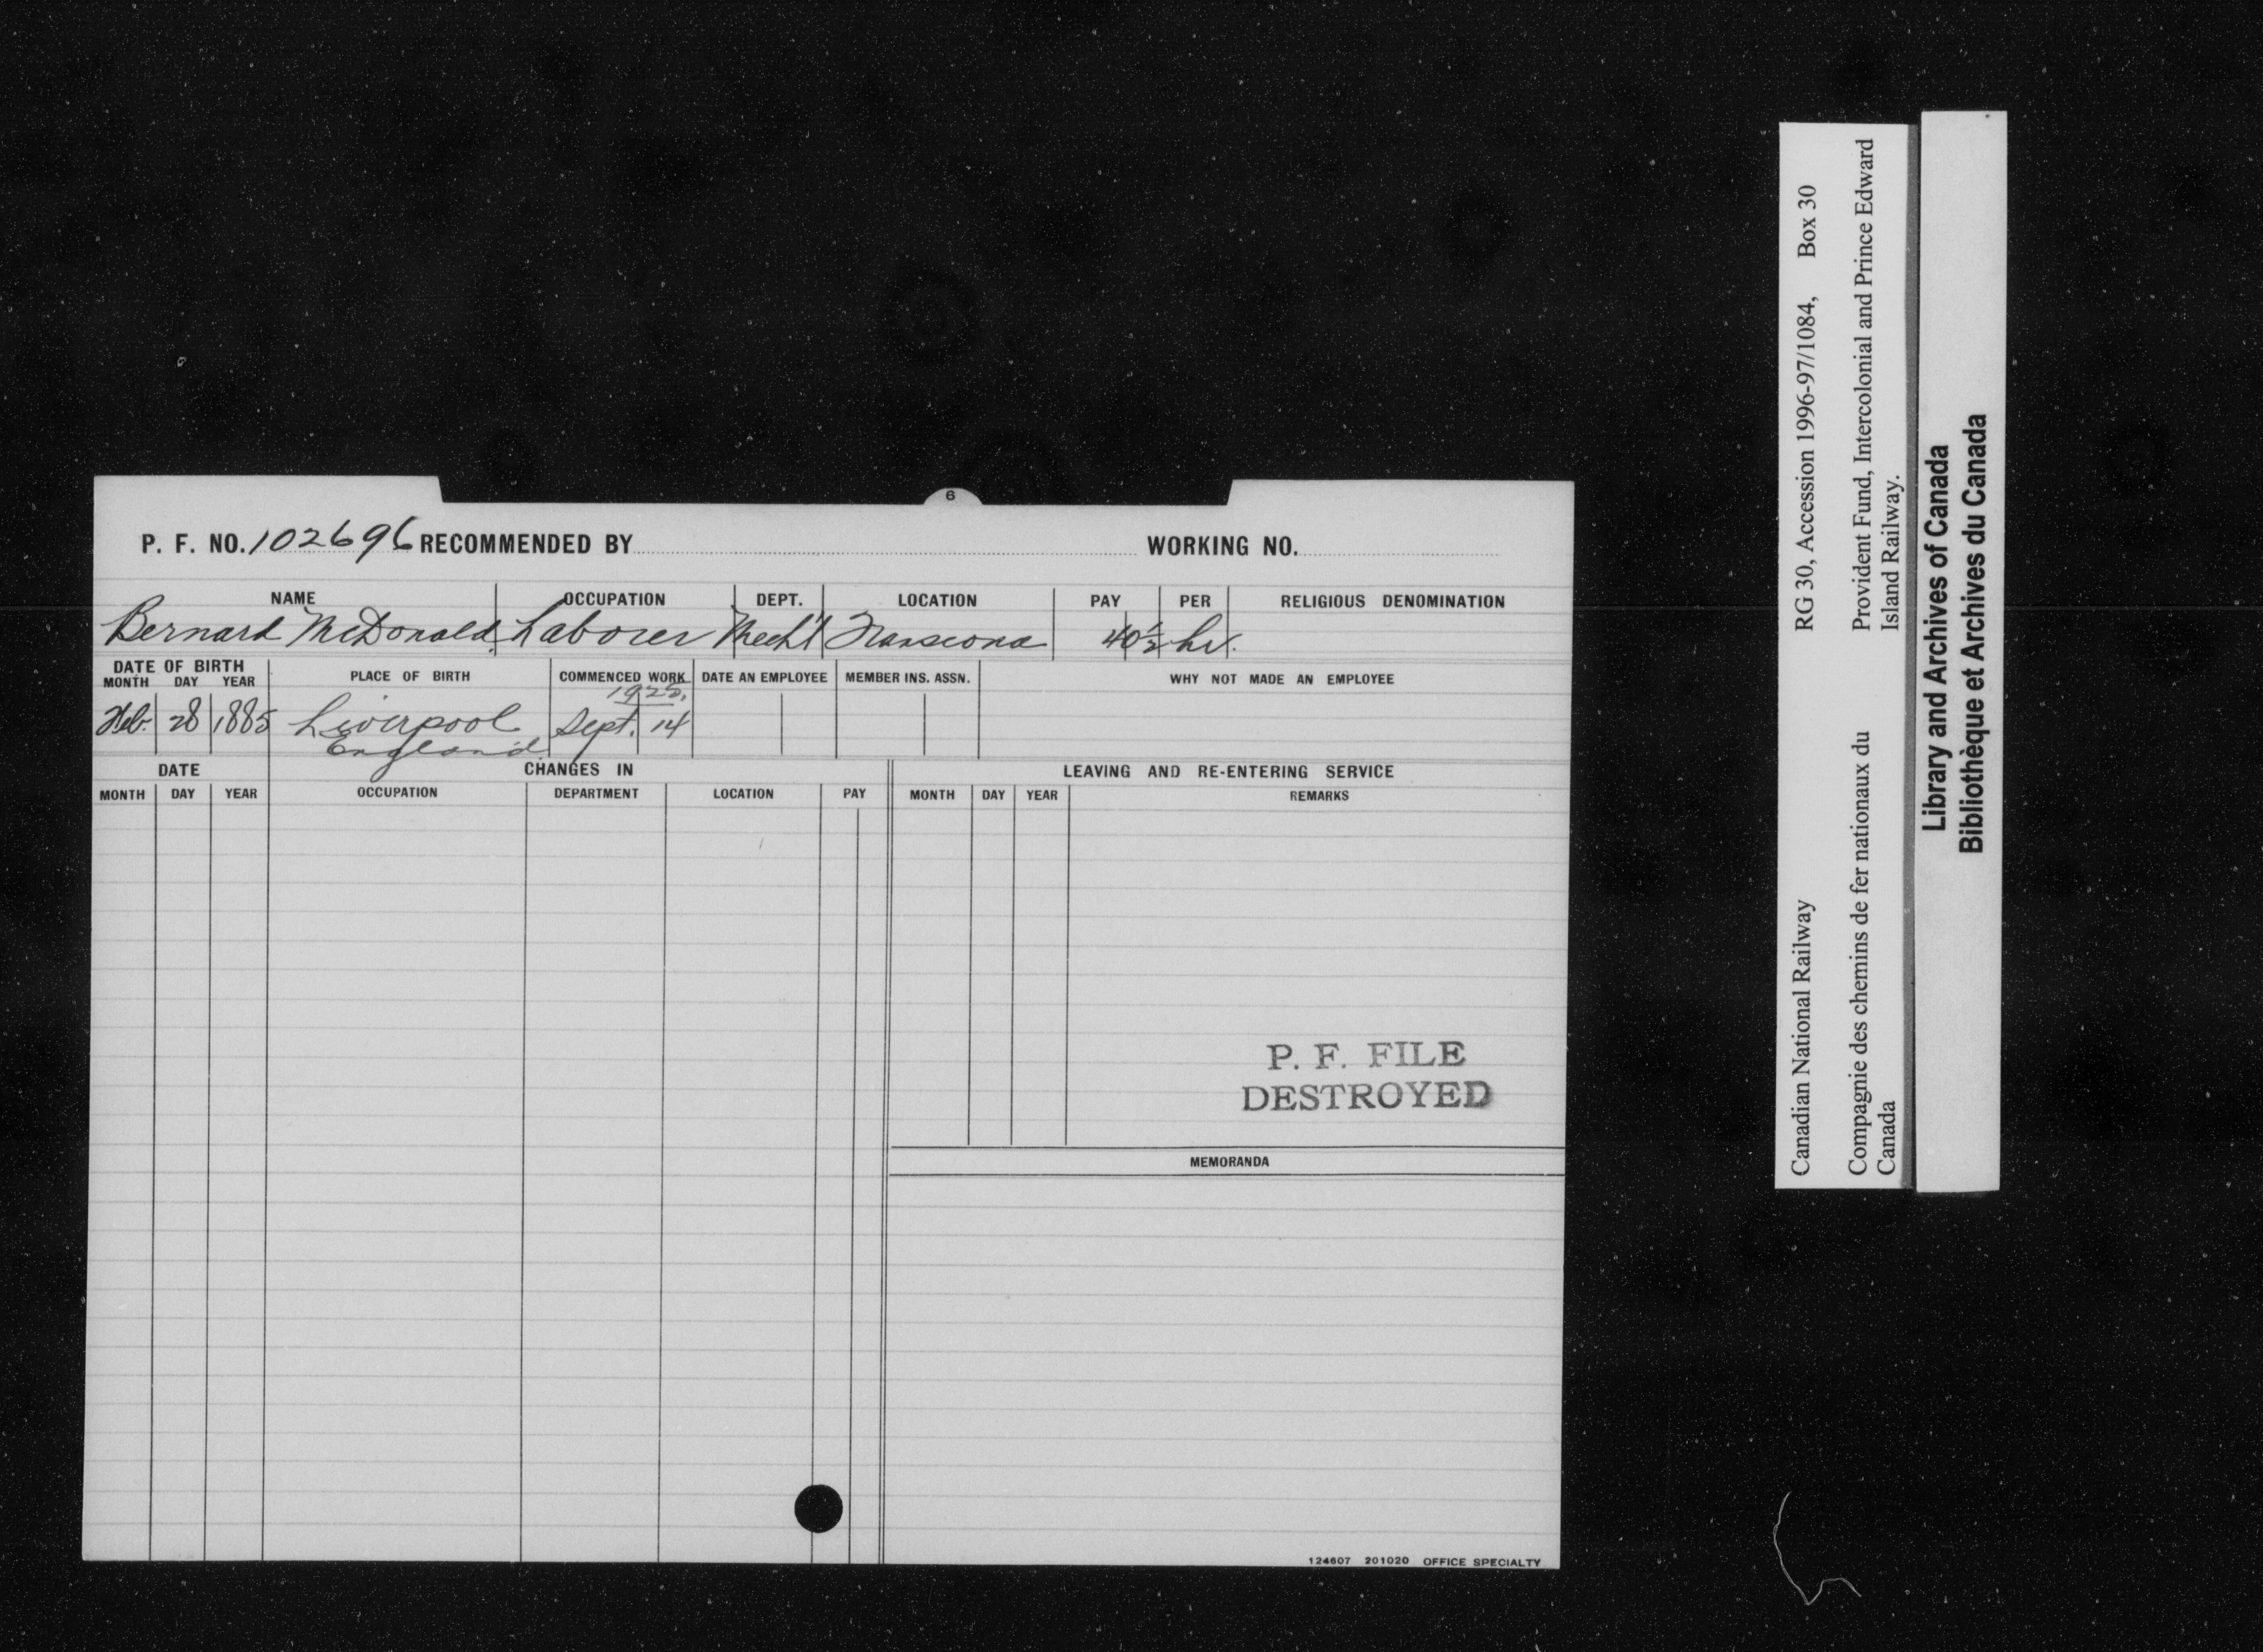 6
P. F. NO. 102696 RECOMMENDED BY WORKING NO.
NAME OCCUPATION DEPT. LOCATION PAY PER RELIGIOUS DENOMINATION
Bernard McDonald. Laborer Mech'l Transcona 40½ hr.
DATE OF BIRTH
MONTH DAY YEAR PLACE OF BIRTH COMMENCED WORK DATE AN EMPLOYEE MEMBER INS. ASSN. WHY NOT MADE AN EMPLOYEE
Feb. 28 1885 Liverpool Sept. 14
England
DATE CHANGES IN LEAVING AND RE-ENTERING SERVICE
MONTH DAY YEAR OCCUPATION DEPARTMENT LOCATION PAY MONTH DAY YEAR REMARKS
P. F. FILE
DESTROYED
MEMORANDA
124607 201020 OFFICE SPECIALTY
Canadian National Railway RG 30, Accession 1996-97/1084, Box 30
Compagnie des chemins de fer nationaux du Provident Fund, Intercolonial and Prince Edward
Canada Island Railway.
Library and Archives of Canada
Bibliothèque et Archives du Canada